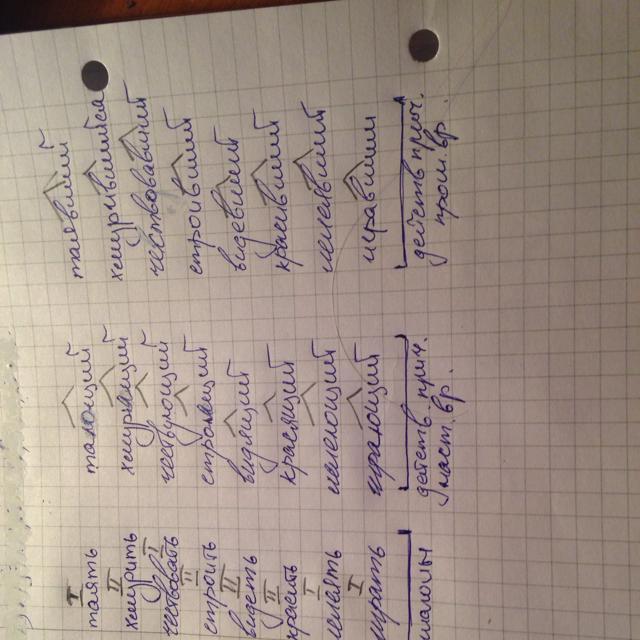 I таять тающий таявший
II хмурить хмурящий хмурившийся
I чествовать чествующий чествовавший
II строить строящий строивший
II видеть видящий видевший
II красить красящий красивший
I лелеять лелеющий лелеявший
I играть играющий игравший
глаголы действ. прич. действ прич.
наст. вр. прош. вр.